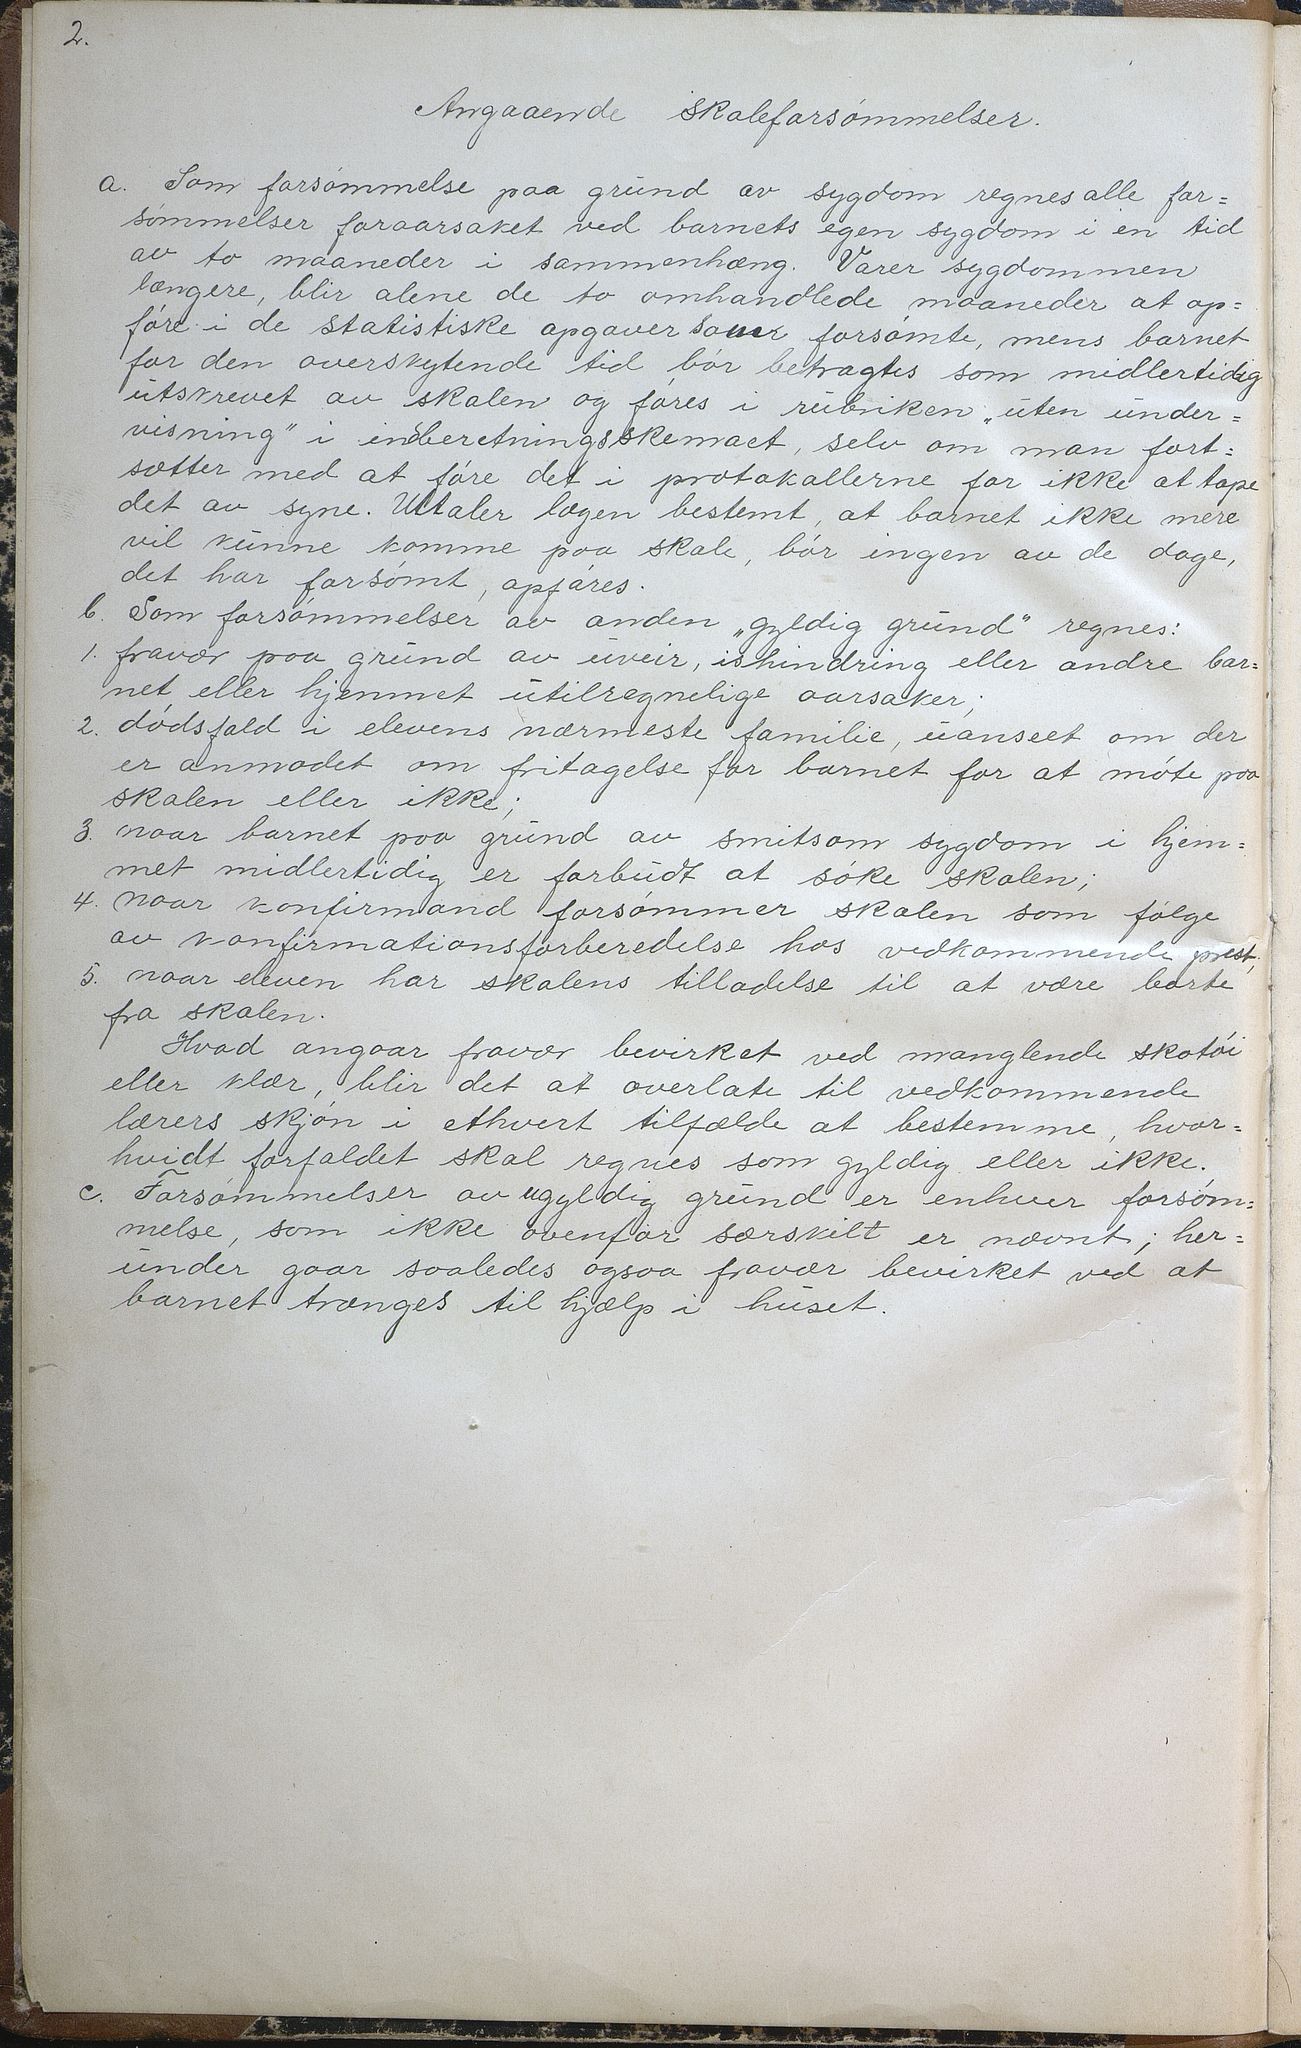 2.
Angaaende skoleforsømmelser.
a. Som forsømmelse paa grund av sygdom regnes alle for=
sømmelser foraarsaket ved barnets egen sygdom i en tid
av to maaneder i sammenhæng. Varer sygdommen
længere, blir alene de to omhandlede maaneder at op=
føre i de statistiske opgaver som forsømte, mens barnet
for den overskytende tid bør betragtes som midlertidig
utskrevet av skolen og føres i rubriken „uten under=
visning" i indberetningsskemaet, selv om man fort=
sætter med at føre det i protokollerne for ikke at tape
det av syne. Uttaler lægen bestemt, at barnet ikke mere
vil kunne komme paa skole, bør ingen av de dage,
det har forsømt, opføres.
b. Som forsømmelser av anden „gyldig grund" regnes:
1. fravær paa grund av uveir, ishindring eller andre bar=
net eller hjemmet utilregnelige aarsaker;
2. dødsfald i elevens nærmeste familie, uanseet om der
er anmodet om fritagelse for barnet for at møte paa
skolen eller ikke;
3. naar barnet paa grund av smitsom sygdom i hjem=
met midlertidig er forbudt at søke skolen;
4. naar konfirmand forsømmer skolen som følge
av konfirmationsforberedelse hos vedkommende prest;
5. naar eleven har skolens tilladelse til at være borte
fra skolen.
Hvad angaar fravær bevirket ved manglende skotøi
eller klær, blir det at overlate til vedkommende
lærers skjøn i ethvert tilfælde at bestemme, hvor=
hvidt forfaldet skal regnes som gyldig eller ikke.
c. Forsømmelser av ugyldig grund er enhver forsøm=
melse, som ikke ovenfor særskilt er nævnt; her=
under gaar saaledes ogsaa fravær bevirket ved at
barnet trænges til hjælp i huset.